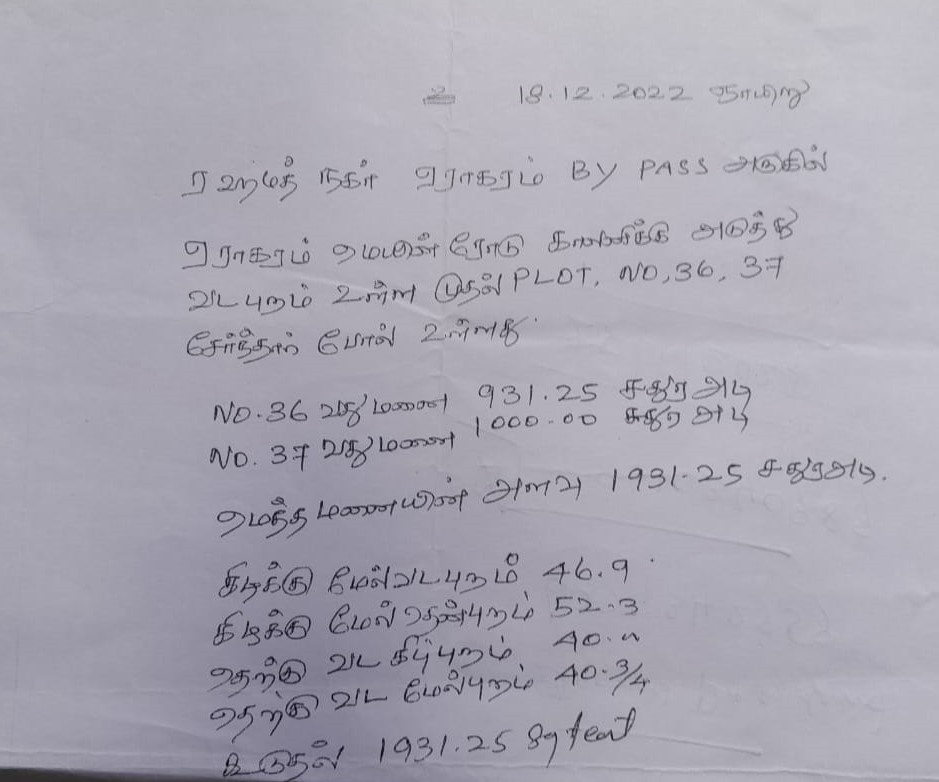 உ 18.12.2022 ஞாயிறு
ரஹ்மத் நகர் ஏராகரம் BY PASS அருகில்
ஏராகரம் மெயின் ரோடு காலனிக்கு அடுத்து
வடபுறம் உள்ள முதல் PLOT, NO, 36, 37
சேர்ந்தாற் போல் உள்ளது.
NO. 36 வது மணை 931.25 சதுர அடி
NO. 37 வது மணை 1000.00 சதுர அடி
மெத்த மணையின் அளவு 1931.25 சதுரஅடி.
கிழக்கு மேல் வடபுறம் 46.9
கிழக்கு மேல் தென்புறம் 52.3
தெற்கு வட கீழ்புறம் 40."
தெற்கு வட மேல்புறம் 40.3/4
கூடுதல் 1931.25 Sq feet